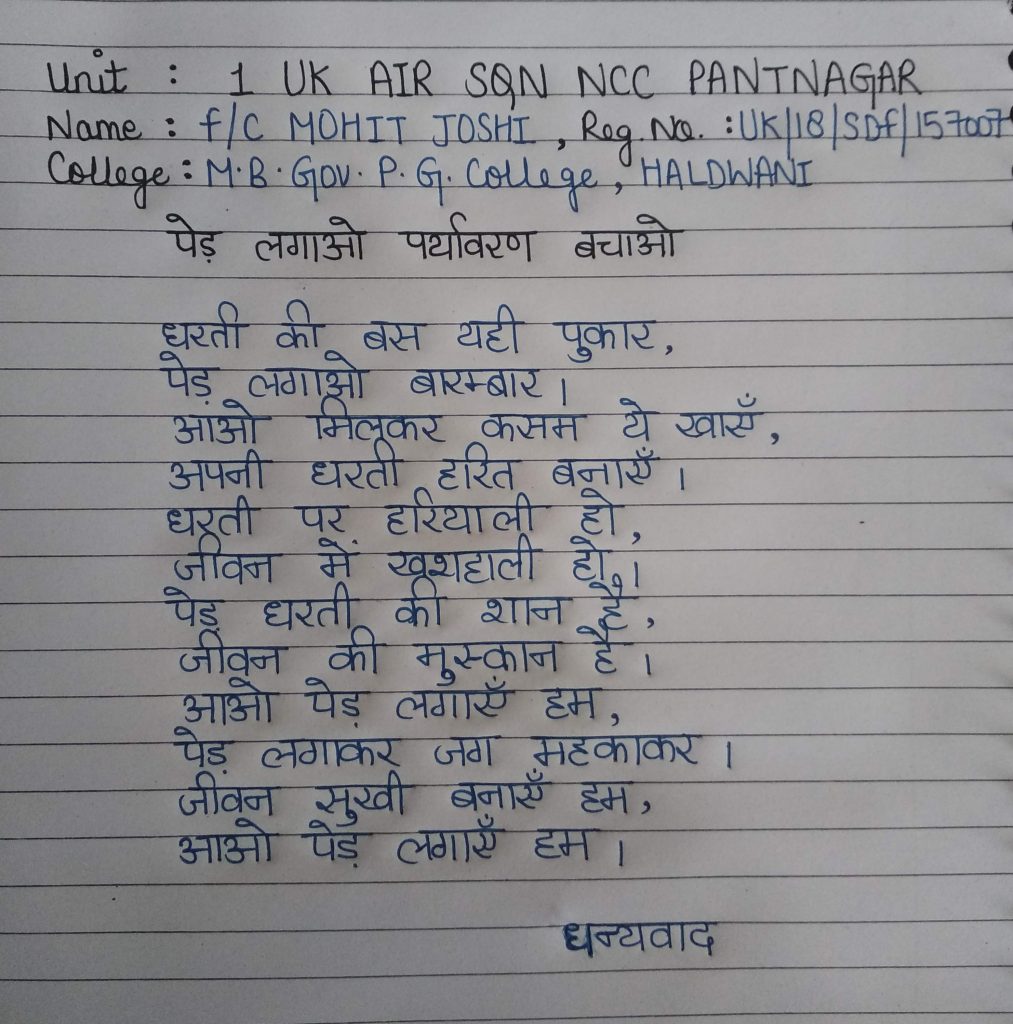 Unit : 1 UK AIR SQN NCC PANTNAGAR
Name : f/C MOHIT JOSHI, Reg. No. : UK/18/SDf/157007
College : M.B. Gov. P.G. College, HALDWANI
पेड़ लगाओ पर्यावरण बचाओ
धरती की बस यही पुकार,
पेड़ लगाओ बारम्बार।
आओ मिलकर कसम ये खाएँ,
अपनी धरती हरित बनाएँ।
धरती पर हरियाली हो,
जीवन में खुशहाली हो।
पेड़ धरती की शान है,
जीवन की मुस्कान है।
आओ पेड़ लगाएँ हम,
पेड़ लगाकर जग महकाकर।
जीवन सुखी बनाएँ हम,
आओ पेड़ लगाएँ हम।
धन्यवाद